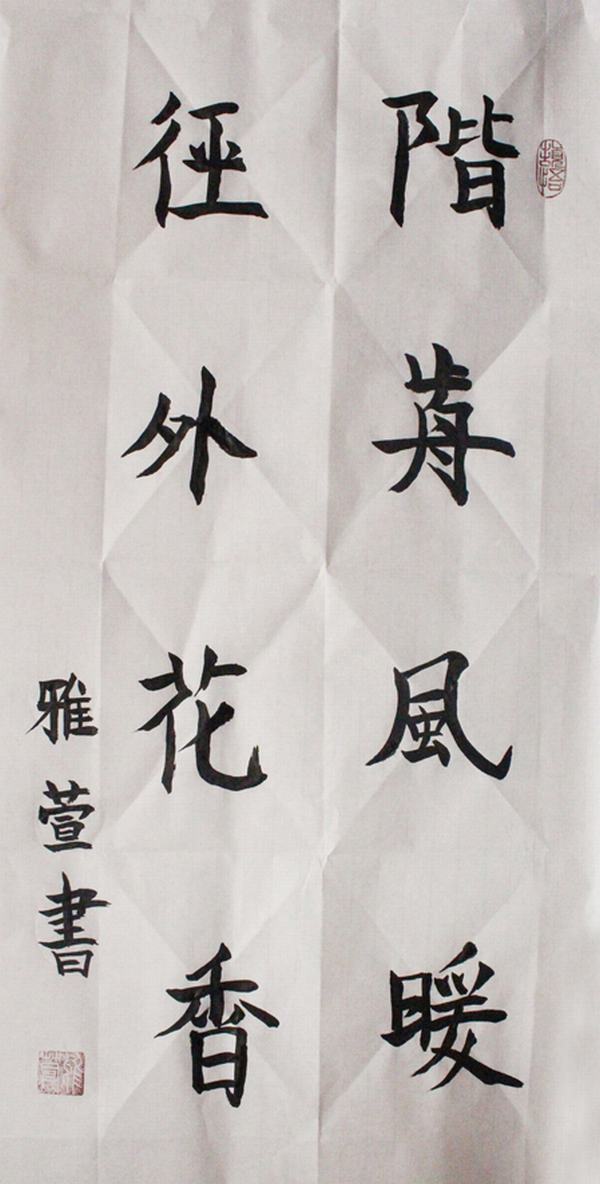 階歬風暖
徑外花香
雅萱書